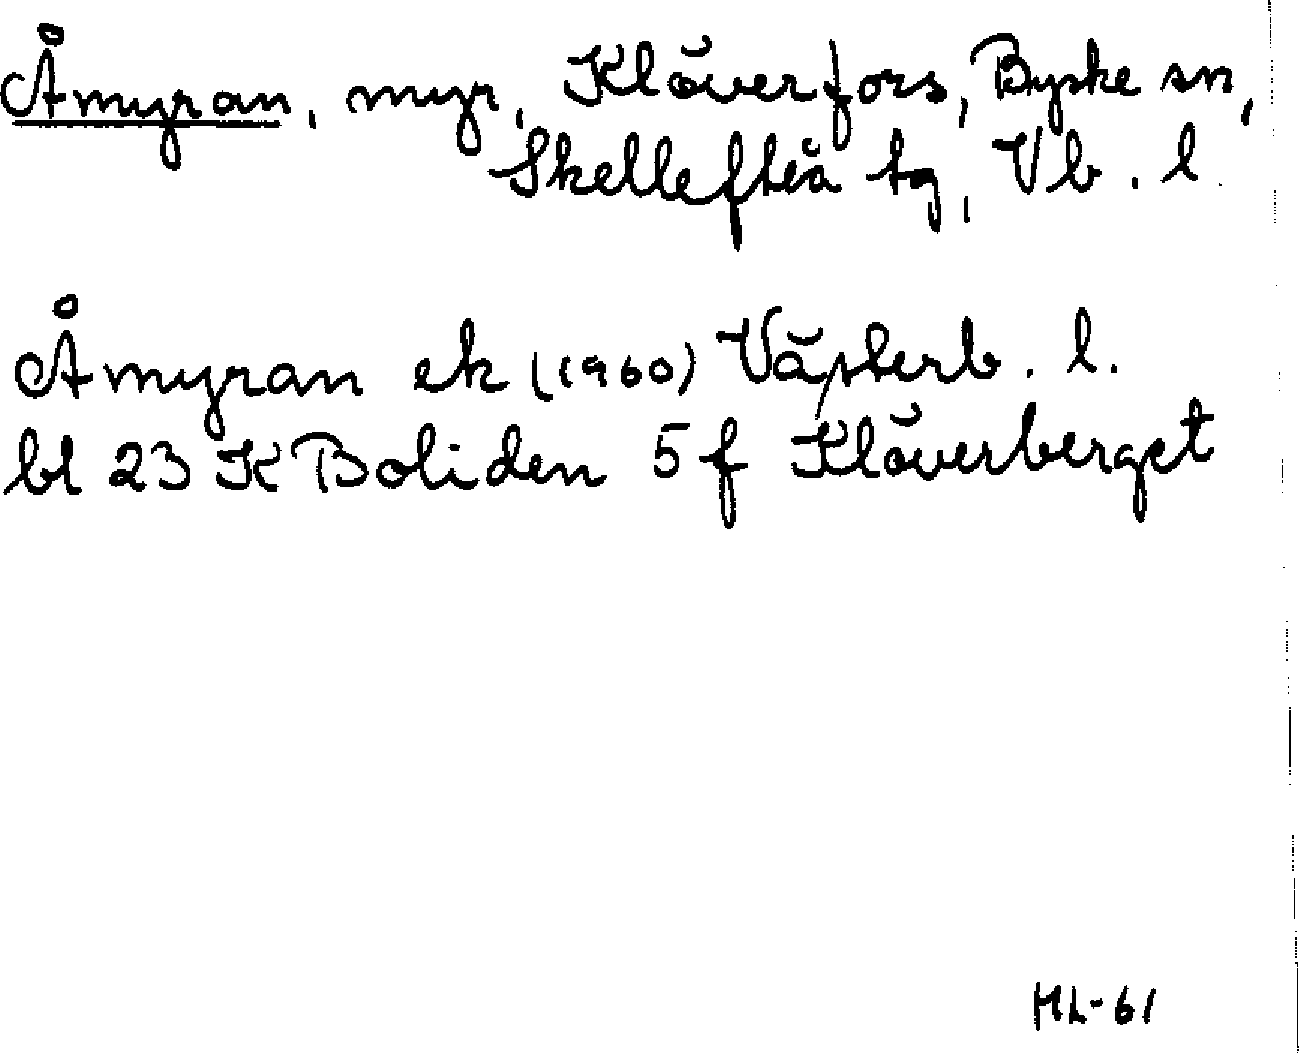 Åmyran, myr, Klöverfors, Byske sn,
Skellefteå tg, Vb. l.
Åmyran ek (1960) Västerb. l.
bl 23 K Boliden 5f Klöverberget
HL-61